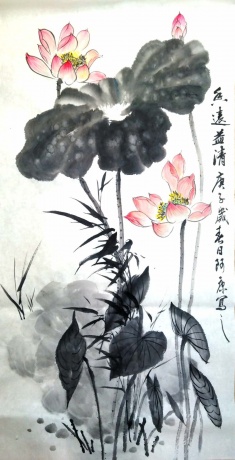 香遠益清 庚子歲春日阿康寫之